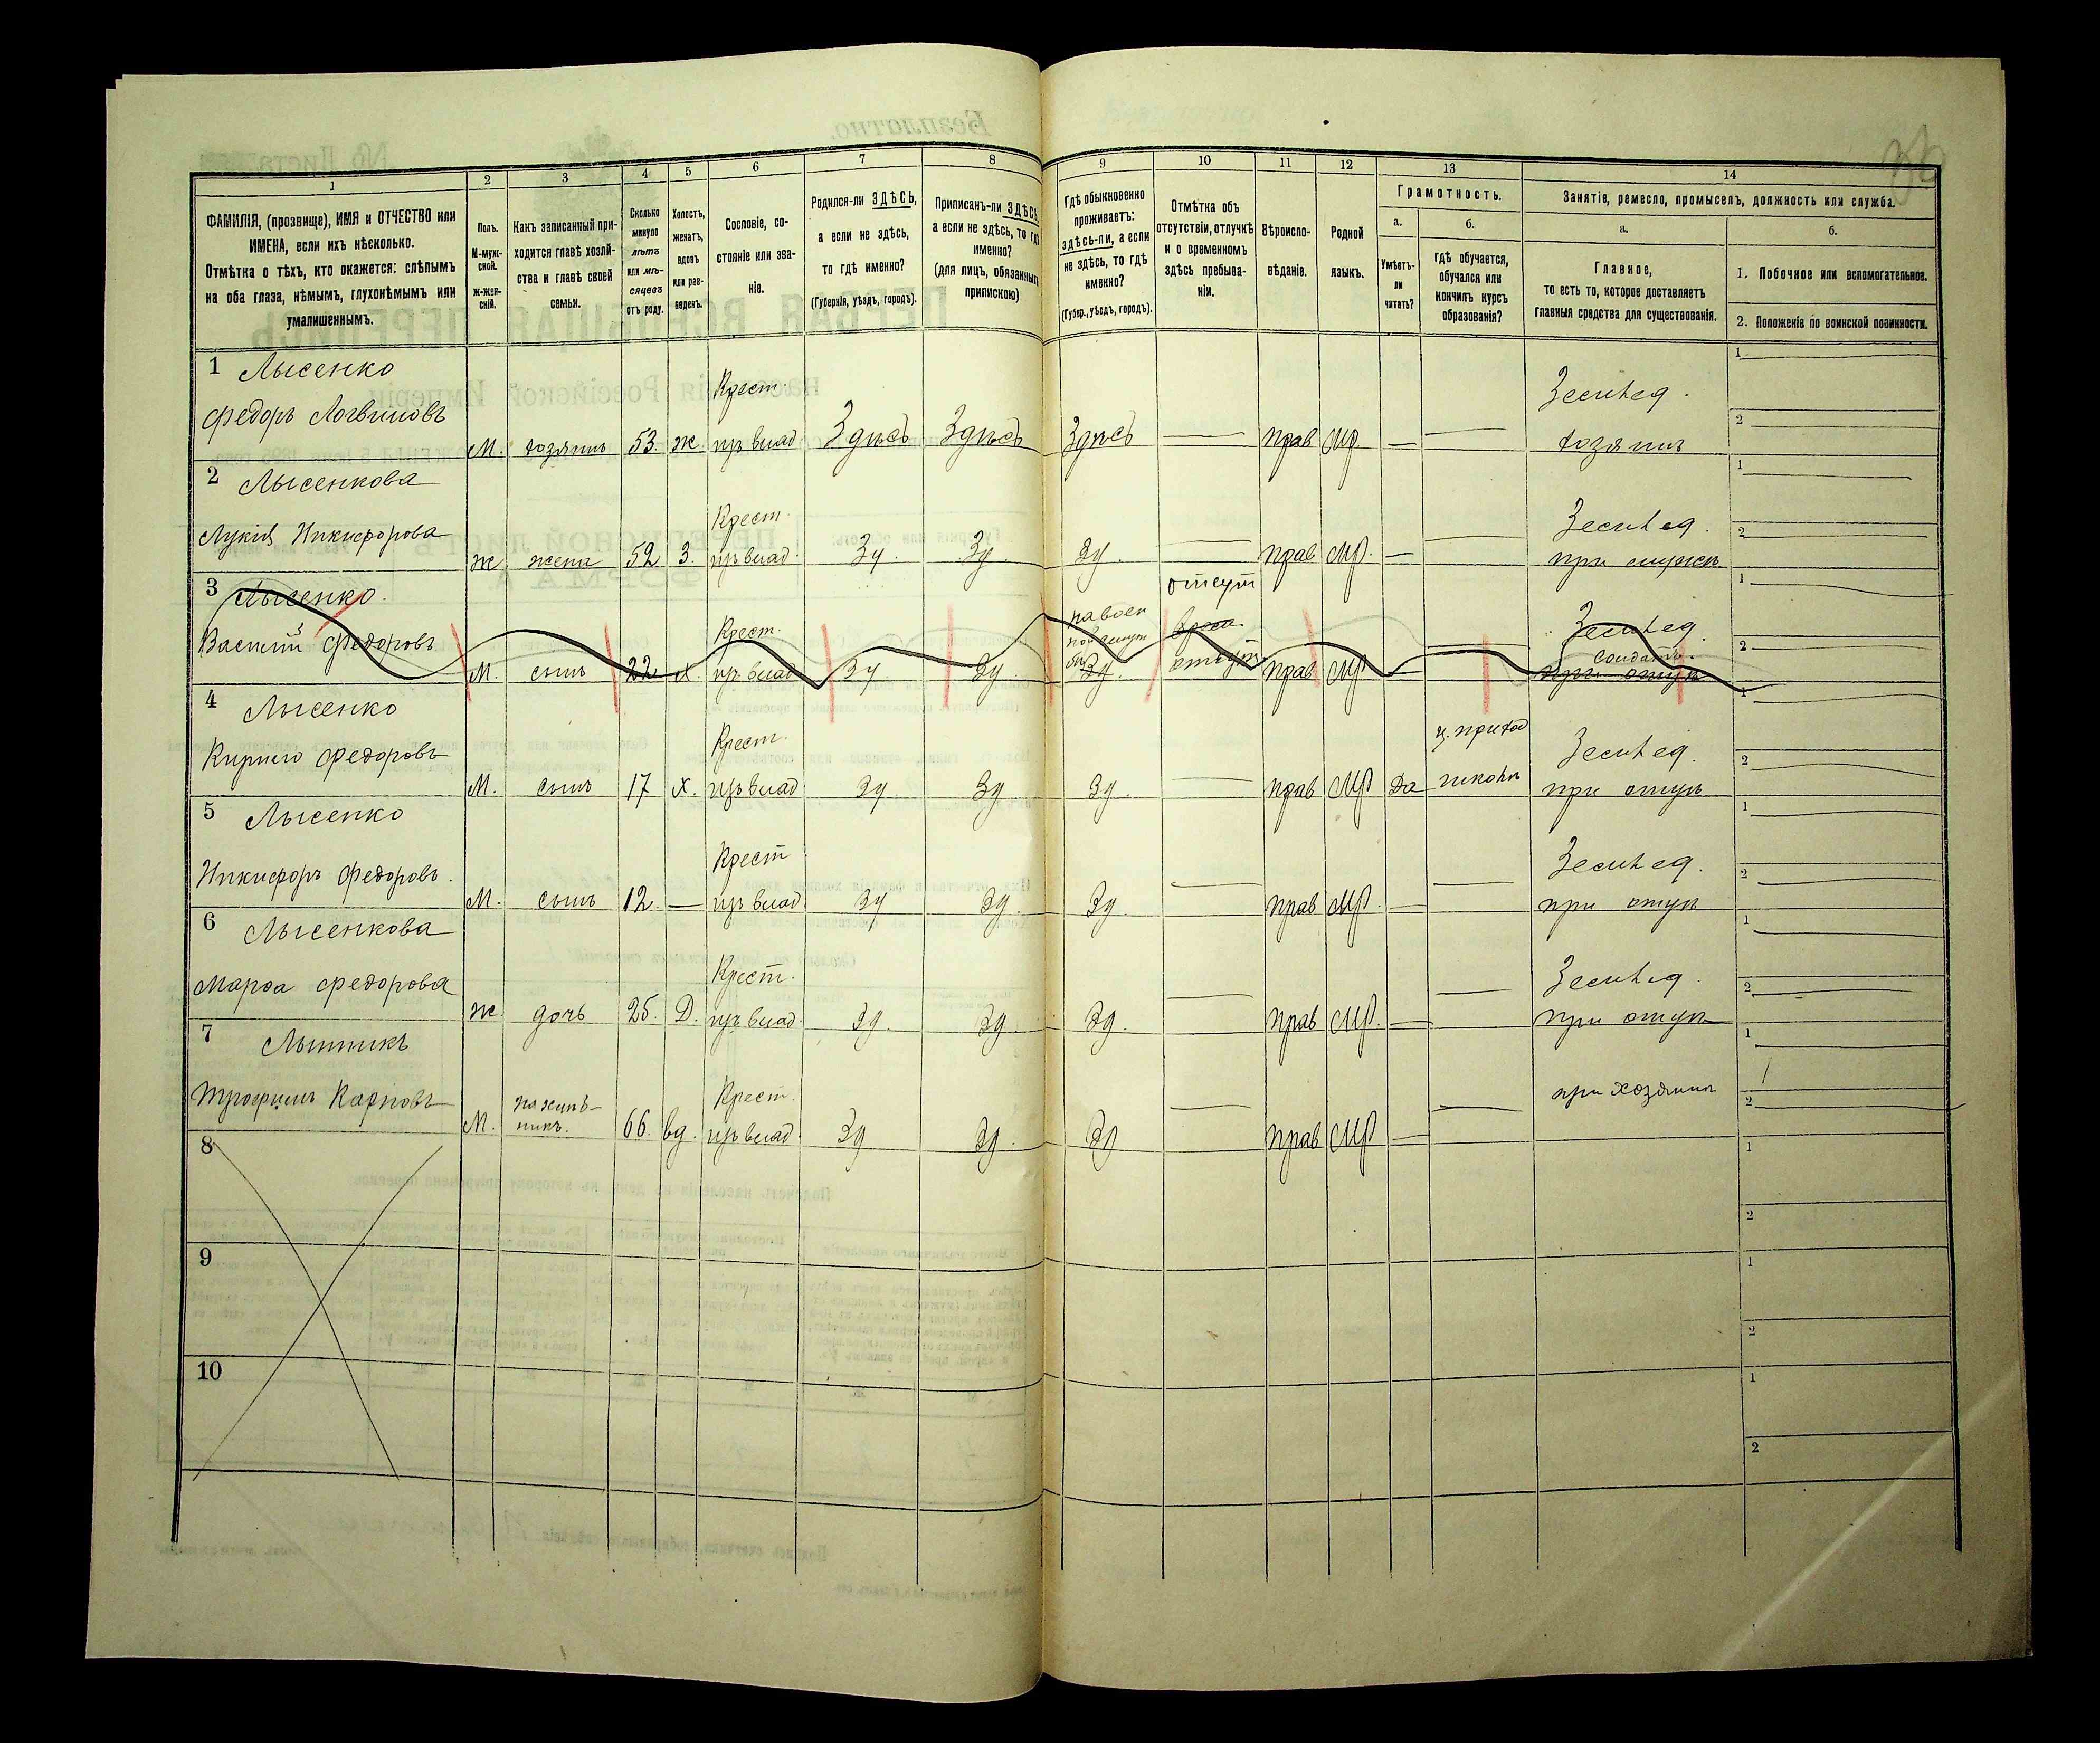 1
2
3
4
5
6
7
8
9
10
11
12
13
14
ФАМИЛІЯ, (прозвище), ИМЯ и ОТЧЕСТВО или
ИМЕНА, если ихъ нѣсколько.
Отмѣтка о тѣхъ, кто окажется: слѣпымъ
на оба глаза, нѣмымъ, глухонѣмымъ или
умалишеннымъ.
Полъ.
М-муж-
ской.
Ж-жен-
скій.
Какъ записанный при-
ходится главѣ хозяй-
ства и главѣ своей
семьи.
Сколько
минуло
лѣтъ
или мѣ-
сяцевъ
отъ роду.
Холостъ,
женатъ,
вдовъ
или раз-
веденъ.
Сословіе, со-
стояніе или зва-
ніе.
Родился-ли ЗДѢСЬ,
а если не здѣсь,
то гдѣ именно?
(Губернія, уѣздъ, городъ).
Приписанъ-ли ЗДѢСЬ,
а если не здѣсь, то гдѣ
именно?
(для лицъ, обязанныхъ
припискою)
Гдѣ обыкновенно
проживаетъ:
здѣсь-ли, а если
не здѣсь, то гдѣ
именно?
(Губер., уѣздъ, городъ).
Отмѣтка объ
отсутствіи, отлучкѣ
и о временномъ
здѣсь пребыва-
ніи.
Вѣроиспо-
вѣданіе.
Родной
языкъ.
Грамотность.
а.
Умѣетъ-
ли
читать?
б.
гдѣ обучается,
обучался или
кончилъ курсъ
образованія?
Занятіе, ремесло, промыселъ, должность или служба.
а.
Главное,
то есть то, которое доставляетъ
главныя средства для существованія.
б.
1. Побочное или вспомогательное.
2. Положеніе по воинской повинности.
1 Лысенко
Федоръ Логвиновъ
М. хозяинъ 53. ж. Крест. изъ влад Здѣсь Здѣсь Здѣсь — прав мр. — — Землед. хозяинъ
2 Лысенкова
Лукія Никифорова
ж жена 52 З. Крест. изъ влад. Зд. Зд. Зд. — прав мр. — — Землед. при мужѣ
3 Лысенко.
Василій Федоровъ
М. сынъ 22. х. Крест. изъ влад Зд Зд. Зд. отсут прав мр — — Землед. Солдатъ. при отцѣ
4 Лысенко
Кирило Федоровъ
М. сынъ 17 х. Крест. изъ влад Зд. Зд Зд. — прав мр Да ц. приход школѣ Землед. при отцѣ
5 Лысенко
Никифоръ Федоровъ.
М. сынъ 12. — Крест изъ влад Зд Зд. Зд. — прав мр. — — Землед. при отцѣ
6 Лысенкова
Марѳа Федорова
ж. дочь 25. Д. Крест. изъ влад. Зд. Зд. Зд. — прав мр. — — Землед. при отцѣ
7
Трофимъ Карповъ
М. 66. вд. Крест. изъ влад. Зд Зд. Зд — прав мр — — при хозяинѣ
8
9
10